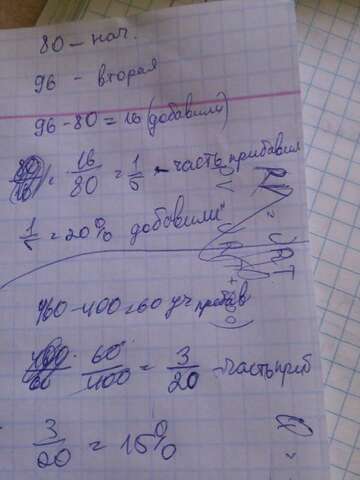 80 - нач.
96 - вторая
96 - 80 = 16 (добавили)
16/80 = 1/5 - часть прибавил
1/5 = 20% добавили
460 - 400 = 60 уч прибав
60/400 = 3/20 - часть приб
3/20 = 15%